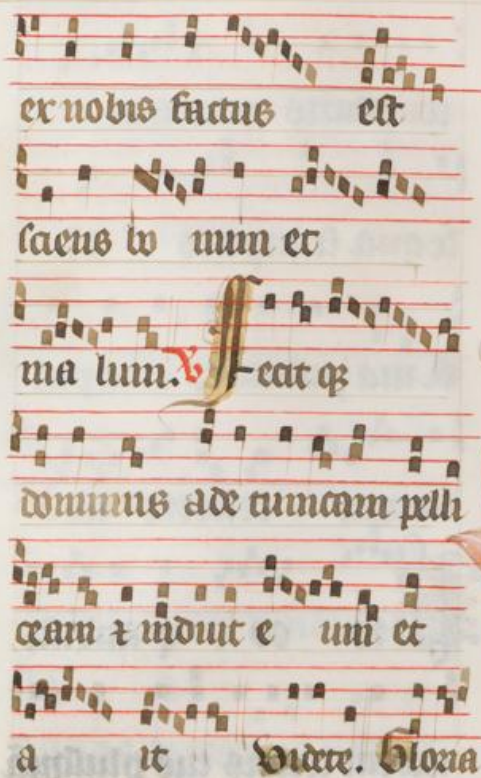 ex nobis factus est
sciens bo num et
ma lum. ℣ Fecit q3
dominus ade tunicam pelli
ceam ⁊ induit e um et
a it Videte. Gloria